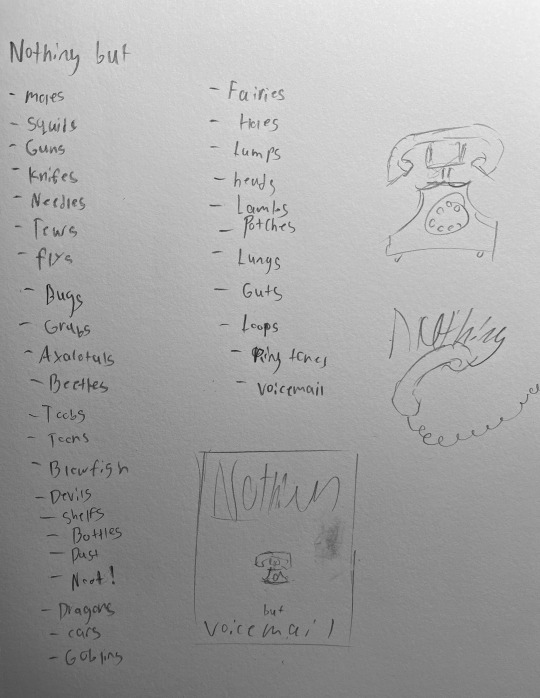 Nothing but
- moles
- Squids
- Guns
- Knifes
- Needles
- flys
- Bugs
- Grubs
- Axalotuls
- Beetles
- Toobs
- Teens
- Blowfish
- Devils
- Shelfs
- Bottles
- Dust
- Neet!
- Dragons
- cars
- Goblins
- Fairies
- Holes
- Lumps
- heads
- Lambs
- Potches
- Lungs
- Guts
- Loops
- Ring tones
- voicemail
Nothing
Nothing
but
voicemail